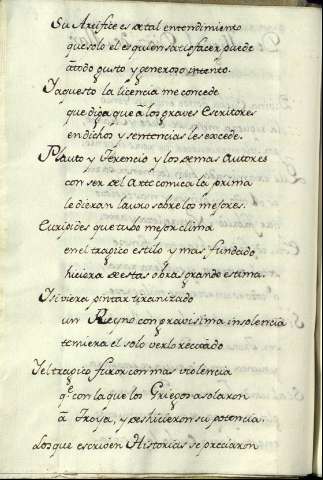 Su Artifice es de tal entendimiento
que solo el es quien satisfacer puede
a todo gusto y generoso intento.
Y aquesto la licencia me concede
que diga que a los graves Escritores
en dichos y sentencias les excede.
Plauto y Terencio y los demas Autores
con ser del Arte comica la prima
le dieran lauro sobre los mejores.
Euripides que tubo mejor clima
en el tragico estilo y mas fundado
hiciera de estas obras grande estima.
Y si viera pintar tiranizado
un Reyno con pravisima insolencia
temiera el solo verlo recitado
Y el tragico furor con mas violencia
qe. con la que los Griegos asolaron
a Troya, y deshicieron su potencia.
Los que escriven Historias se preciaron